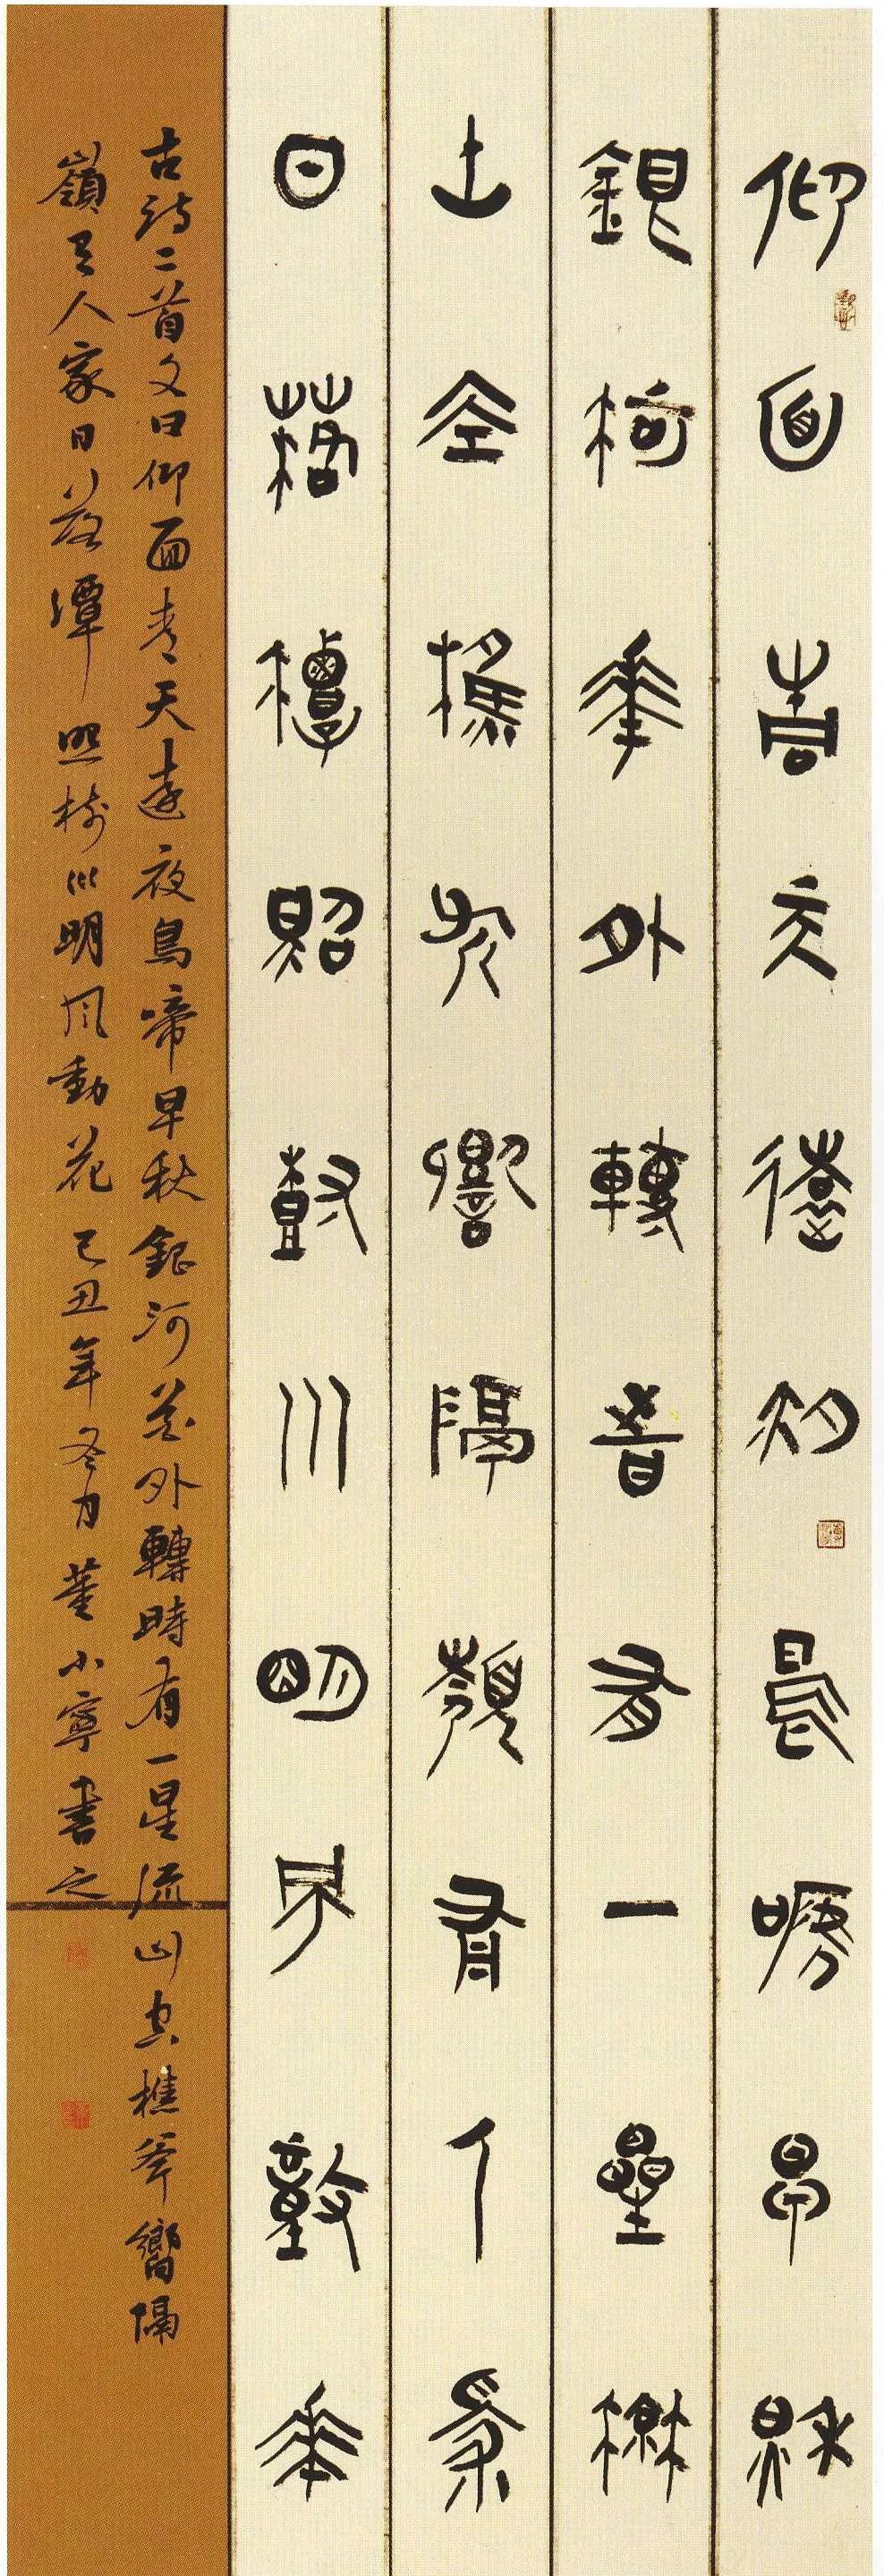 仰面青天遠夜鳥啼早秋
銀河花外轉時有一星流
山空樵斧響隔嶺有人家
日落潭照樹川明風動花
古詩二首文曰仰面青天遠夜鳥啼早秋銀河花外轉時有一星流山空樵斧響隔
嶺有人家日落潭照樹川明風動花己丑年冬月董小寧書之